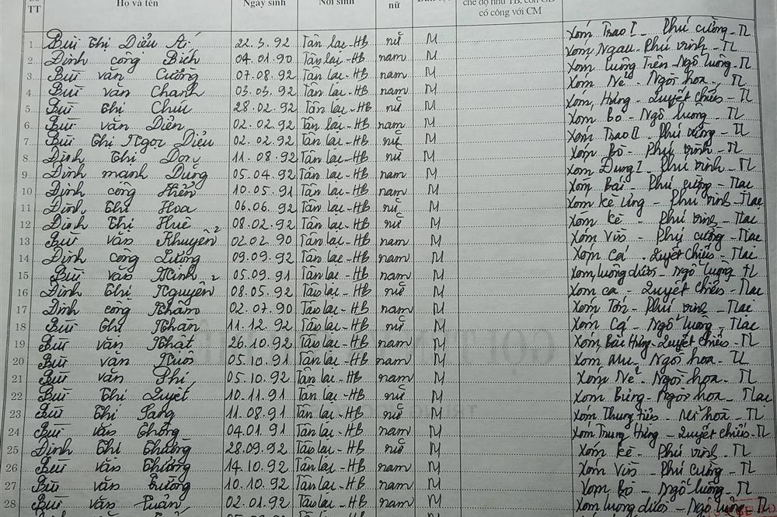 TT Họ và tên Ngày sinh Nơi sinh nữ
chế độ như TB, con
có công với CM
1 Bùi Thị Diệu Ái 22.5.92 Tân lạc-HB nữ M Xóm Trao I - Phú cường-TL
2 Đinh công Bích 04.01.90 Tân lạc-HB nam M Xóm Ngau - Phú vinh-TL
3 Bùi văn Cường 07.08.92 Tân lạc-HB nam M Xóm Luông Trên-Ngổ luông-TL
4 Bùi văn Chanh 03.05.92 Tân lạc-HB nam M Xóm Nẻ - Ngòi hoa-TL
5 Bùi thị Chúc 28.02.92 Tân lạc-HB nữ M Xóm Hưng - Quyết chiến-TL
6 Bùi văn Diên 02.02.92 Tân lạc-HB nam M Xóm bo - Ngổ luông-TL
7 Bùi Thị Ngọc Diệu 02.02.92 Tân lạc-HB nữ M Xóm Trao II - Phú cường-TL
8 Đinh Thị 11.08.92 Tân lạc-HB nữ M Xóm Bò - Phú vinh-TL
9 Đinh mạnh Dũng 05.04.92 Tân lạc-HB nam M Xóm Đung I - Phú vinh-TL
10 Đinh công Hiển 10.05.91 Tân lạc-HB nam M Xóm Bái - Phú cường-Tlac
11 Đinh Thị Hoa 06.06.92 Tân lạc-HB nữ M Xóm kè - Phú vinh-TL
12 Đinh Thị Huế 08.02.92 Tân lạc-HB nữ M Xóm kè - Phú vinh-Tlac
13 Bùi văn Khuyển 02.02.90 Tân lạc-HB nam M Xóm Vin - Phú cường-Tlac
14 Đinh công Lường 09.09.92 Tân lạc-HB nam M Xóm Cá - Quyết chiến-Tlac
15 Bùi văn 05.09.91 Tân lạc-HB nam M Xóm luông dưới-Ngổ luông TL
16 Đinh Thị Nguyên 08.05.92 Tân lạc-HB nữ M Xóm cá - Quyết chiến-Tlac
17 Đinh công Nhâm 02.07.90 Tân lạc-HB nam M Xóm Tón - Phú vinh-Tlac
18 Bùi thị Nhàn 11.12.92 Tân lạc-HB nữ M Xóm Cá - Ngổ luông-Tlac
19 Bùi văn Nhất 26.10.92 Tân lạc-HB nam M Xóm Bắc Hưng-Quyết chiến-TL
20 Bùi văn 05.10.91 Tân lạc-HB nam M Xóm Mu - Ngòi hoa-TL
21 Bùi văn Phi 05.10.92 Tân lạc-HB nam M Xóm Nẻ - Ngòi hoa-TL
22 Bùi Thị Quyết 10.11.91 Tân lạc-HB nữ M Xóm Biệng - Ngòi hoa-Tlac
23 Bùi Thị Sang 11.08.91 Tân lạc-HB nữ M Xóm Thung - hoa-TL
24 Bùi văn Thông 04.01.91 Tân lạc-HB nam M Xóm Trung Hưng-Quyết chiến-TL
25 Đinh Thị Thường 28.09.92 Tân lạc-HB nữ M Xóm kè - Phú vinh-TL
26 Bùi văn Thưởng 14.10.92 Tân lạc-HB nam M Xóm Vin - Phú cường-TL
27 Bùi văn Trường 10.10.92 Tân lạc-HB nam M Xóm Bo - Ngổ luông-TL
28 Bùi văn Tuân 02.01.92 Tân lạc-HB nam M Xóm luông dưới-Ngổ luông-TL